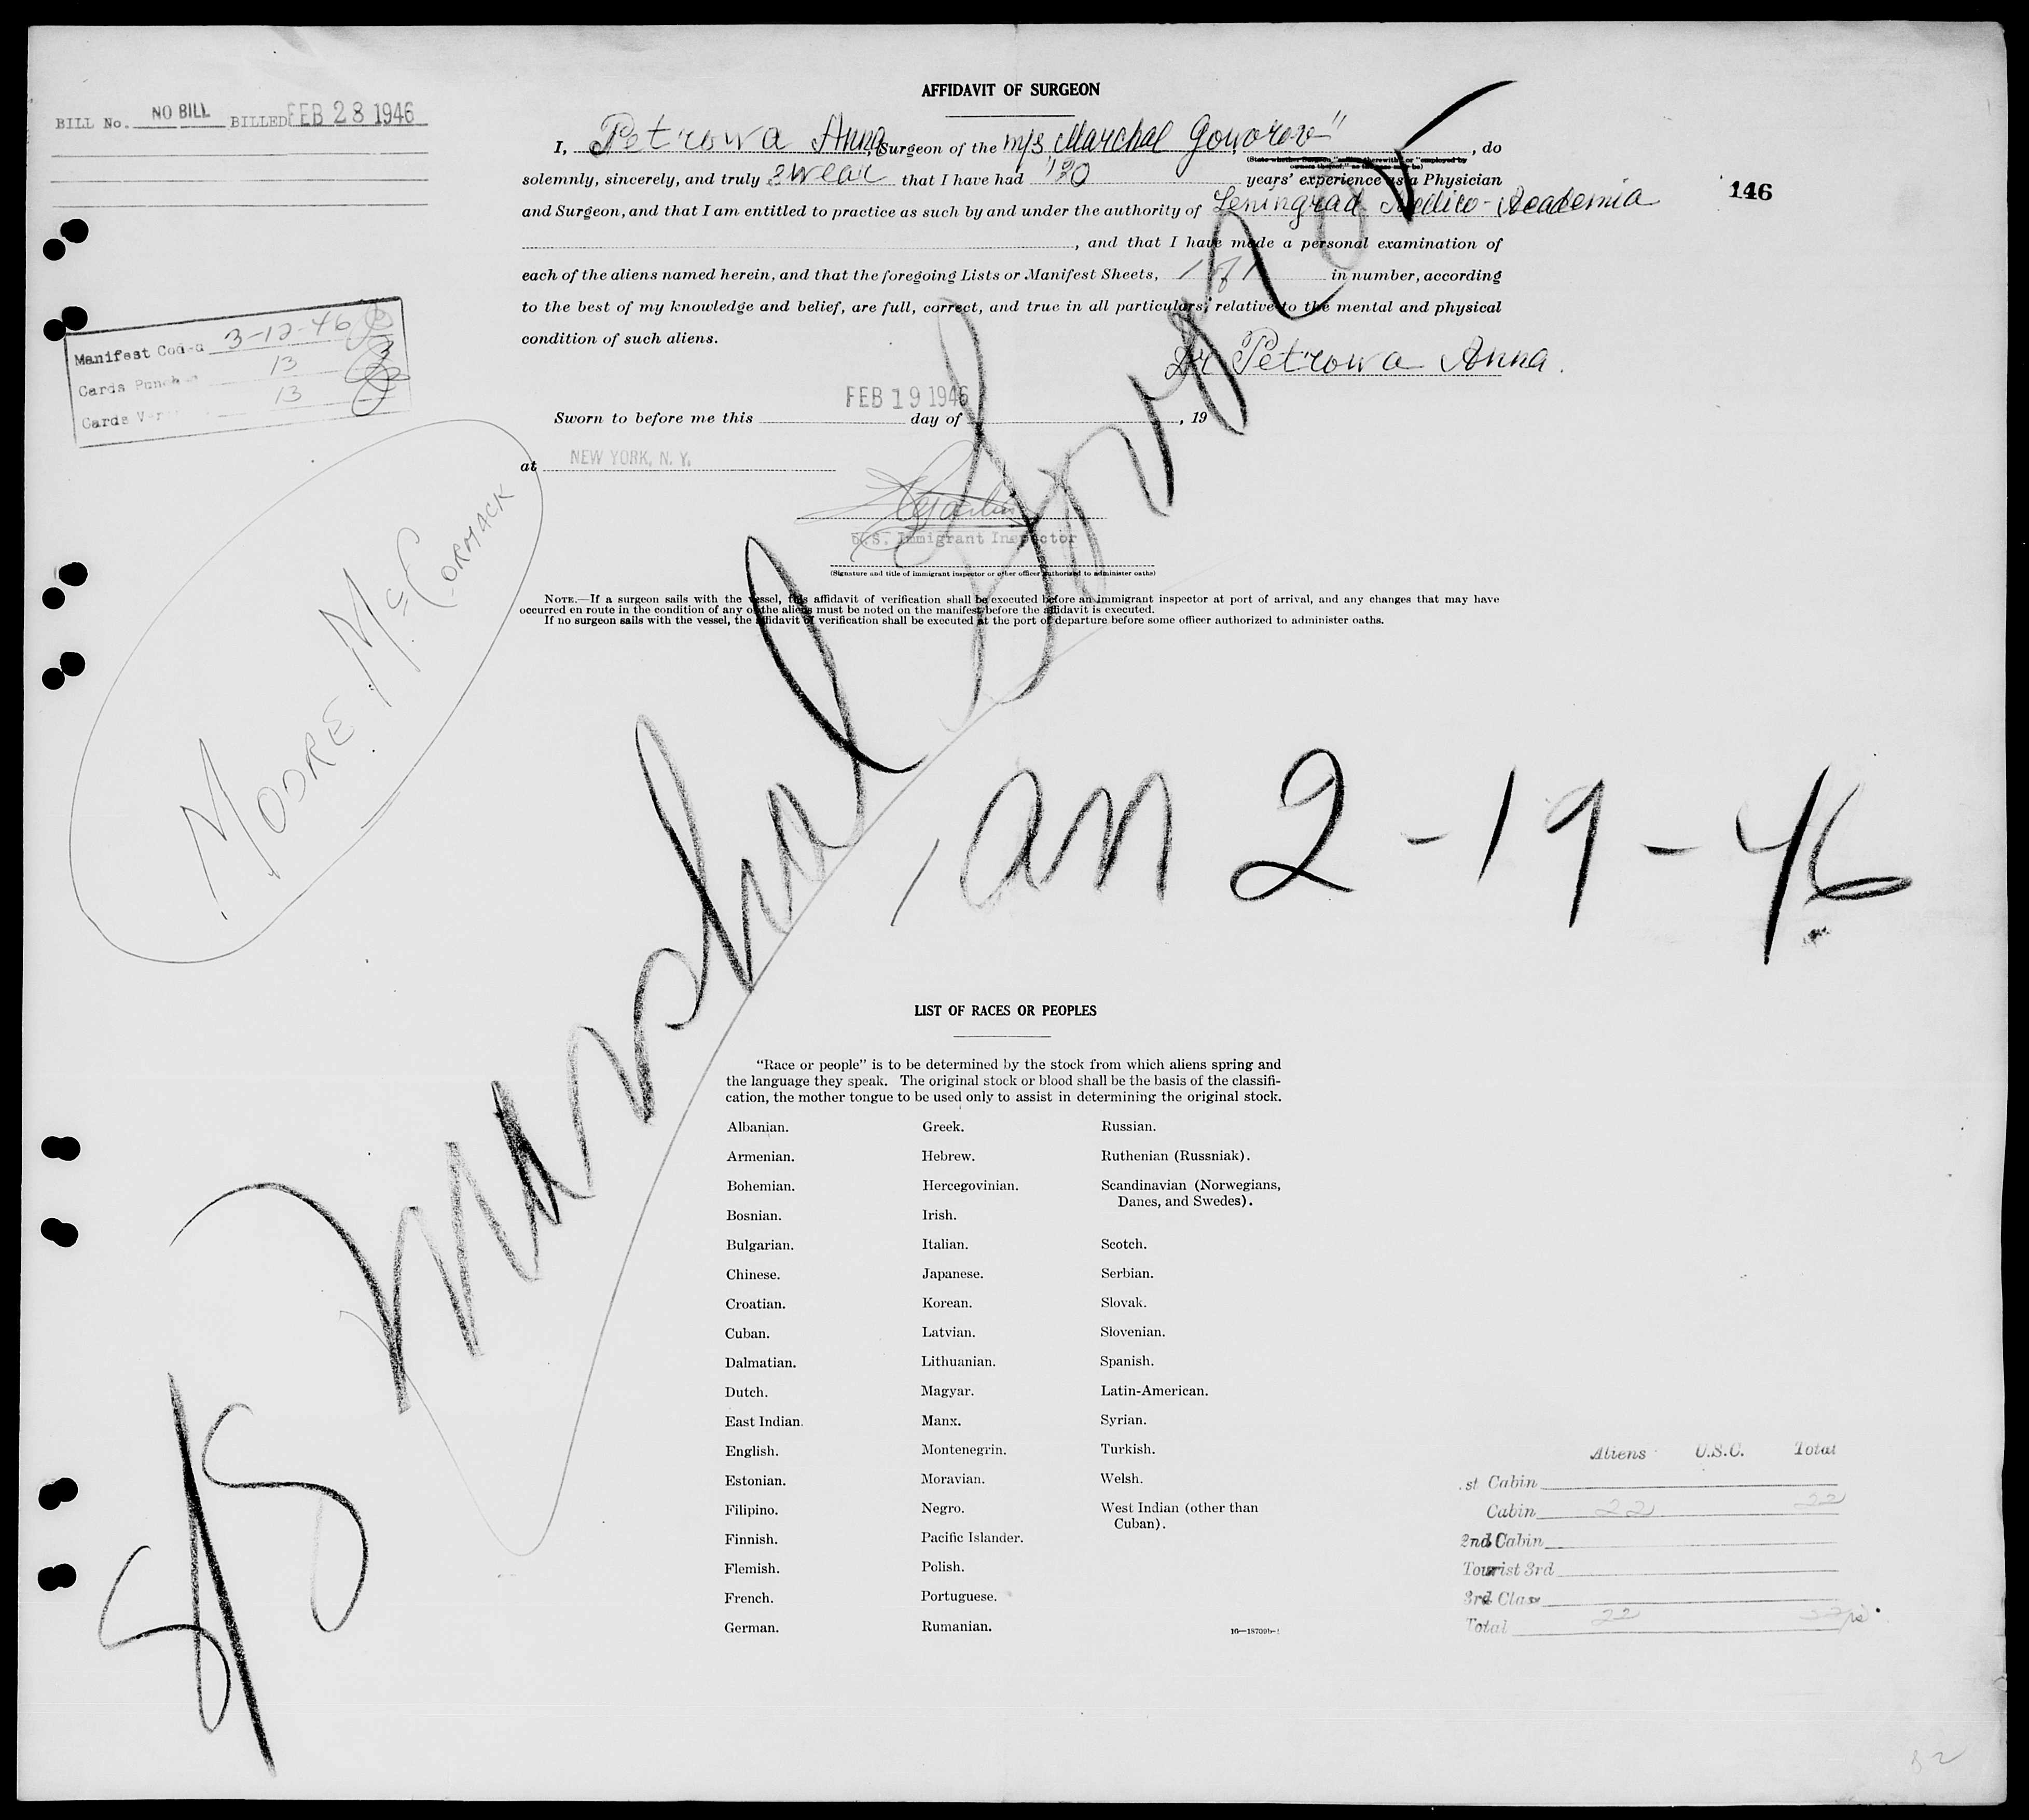 BILL No. NO BILL BILLED FEB 28 1946
AFFIDAVIT OF SURGEON
I, Petrowa Anna, Surgeon of the m/s "Marchal Goworow", do
solemnly, sincerely, and truly swear that I have had "20 years' experience as a Physician
and Surgeon, and that I am entitled to practice as such by and under the authority of Leningrad Medico-Academia
, and that I have made a personal examination of
each of the aliens named herein, and that the foregoing Lists or Manifest Sheets, 1 of 1 in number, according
to the best of my knowledge and belief, are full, correct, and true in all particulars, relative to the mental and physical
condition of such aliens.
Dr Petrowa Anna.
Sworn to before me this FEB 19 1946 day of , 19
at NEW YORK, N. Y.
U.S. Immigrant Inspector
(Signature and title of immigrant inspector or other officer authorized to administer oaths)
NOTE.—If a surgeon sails with the vessel, this affidavit of verification shall be executed before an immigrant inspector at port of arrival, and any changes that may have
occurred en route in the condition of any of the aliens must be noted on the manifest before the affidavit is executed.
If no surgeon sails with the vessel, the affidavit of verification shall be executed at the port of departure before some officer authorized to administer oaths.
146
Manifest 3-12-46
Cards 13
Cards 13
MOORE McCORMACK
S/S Marshal Govorov
arr 2-19-46
LIST OF RACES OR PEOPLES
"Race or people" is to be determined by the stock from which aliens spring and
the language they speak. The original stock or blood shall be the basis of the classifi-
cation, the mother tongue to be used only to assist in determining the original stock.
Albanian.
Armenian.
Bohemian.
Bosnian.
Bulgarian.
Chinese.
Croatian.
Cuban.
Dalmatian.
Dutch.
East Indian.
English.
Estonian.
Filipino.
Finnish.
Flemish.
French.
German.
Greek.
Hebrew.
Hercegovinian.
Irish.
Italian.
Japanese.
Korean.
Latvian.
Lithuanian.
Magyar.
Manx.
Montenegrin.
Moravian.
Negro.
Pacific Islander.
Polish.
Portuguese.
Rumanian.
Russian.
Ruthenian (Russniak).
Scandinavian (Norwegians,
Danes, and Swedes).
Scotch.
Serbian.
Slovak.
Slovenian.
Spanish.
Latin-American.
Syrian.
Turkish.
Welsh.
West Indian (other than
Cuban).
Aliens U.S.C. Total
st Cabin
Cabin 22 22
2nd Cabin
Tourist 3rd
3rd Class
Total 22